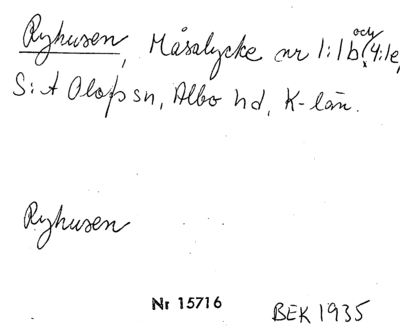 Ryhusen, Måsalycke nr 1:1b och 4:1e,
S:t Olof sn, Albo hd, K-län.
Ryhusen
Nr 15716
BEK 1935